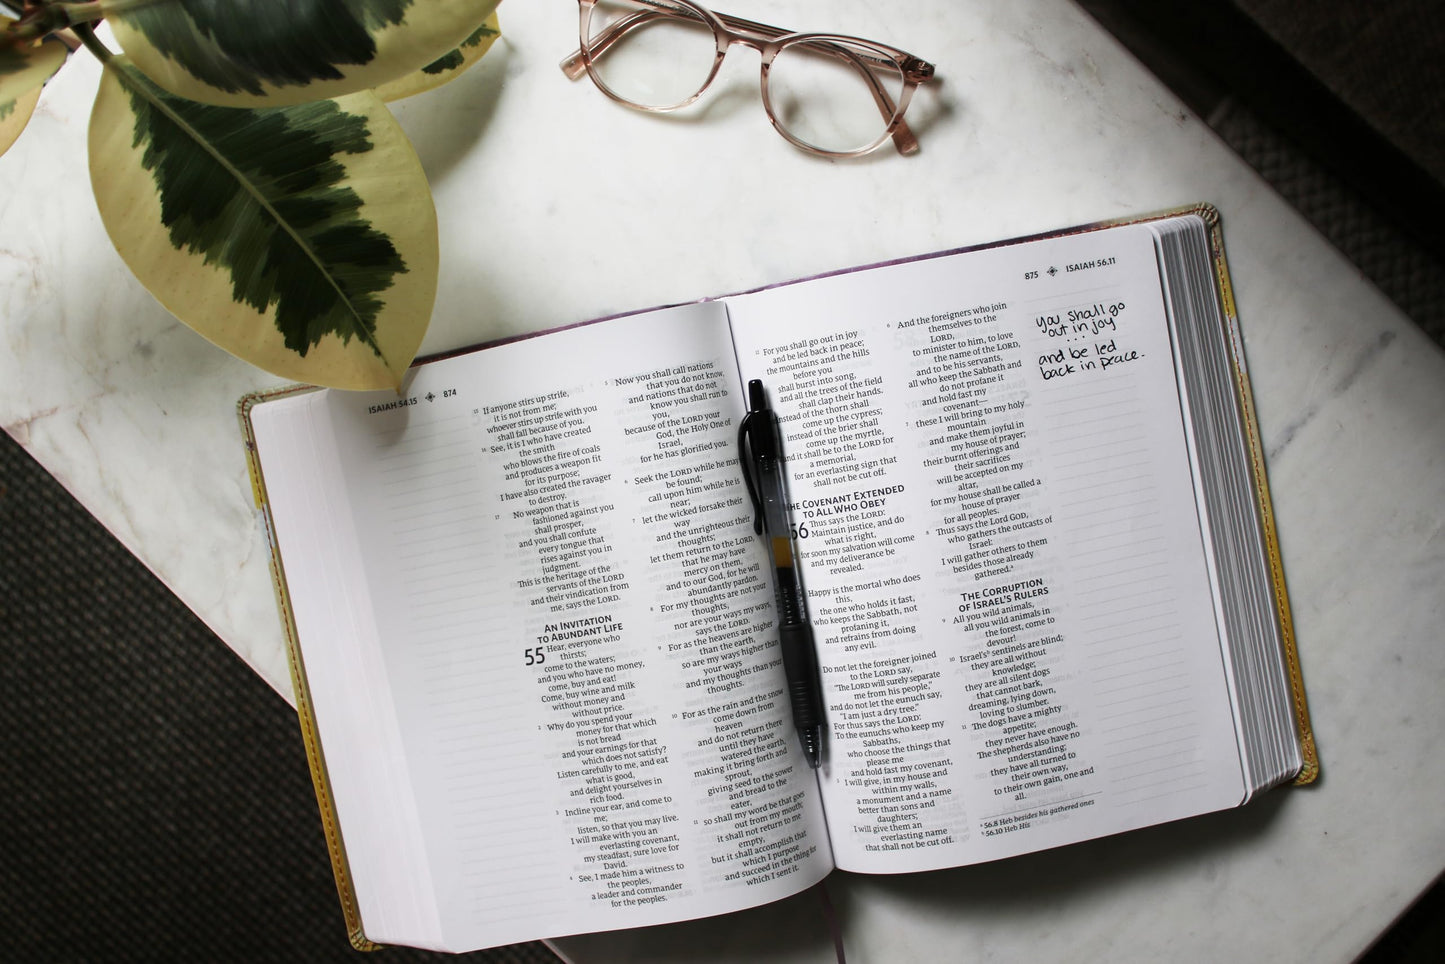 ISAIAH 54.15 874
15 If anyone stirs up strife,
it is not from me;
whoever stirs up strife with you
shall fall because of you.
16 See, it is I who have created
the smith
who blows the fire of coals
and produces a weapon fit
for its purpose;
I have also created the ravager
to destroy.
17 No weapon that is
fashioned against you
shall prosper,
and you shall confute
every tongue that
rises against you in
judgment.
This is the heritage of the
servants of the LORD
and their vindication from
me, says the LORD.
AN INVITATION
TO ABUNDANT LIFE
55 Hear, everyone who
thirsts;
come to the waters;
and you who have no money,
come, buy and eat!
Come, buy wine and milk
without money and
without price.
2 Why do you spend your
money for that which
is not bread
and your earnings for that
which does not satisfy?
Listen carefully to me, and eat
what is good,
and delight yourselves in
rich food.
3 Incline your ear, and come to
me;
listen, so that you may live.
I will make with you an
everlasting covenant,
my steadfast, sure love for
David.
4 See, I made him a witness to
the peoples,
a leader and commander
for the peoples.
5 Now you shall call nations
that you do not know,
and nations that do not
know you shall run to
you,
because of the LORD your
God, the Holy One of
Israel,
for he has glorified you.
6 Seek the LORD while he may
be found;
call upon him while he is
near;
7 let the wicked forsake their
way
and the unrighteous their
thoughts;
let them return to the LORD,
that he may have
mercy on them,
and to our God, for he will
abundantly pardon.
8 For my thoughts are not your
thoughts,
nor are your ways my ways,
says the LORD.
9 For as the heavens are higher
than the earth,
so are my ways higher than
your ways
and my thoughts than your
thoughts.
10 For as the rain and the snow
come down from
heaven
and do not return there
until they have
watered the earth,
making it bring forth and
sprout,
giving seed to the sower
and bread to the
eater,
11 so shall my word be that goes
out from my mouth;
it shall not return to me
empty,
but it shall accomplish that
which I purpose
and succeed in the thing for
which I sent it.
875 ISAIAH 56.11
12 For you shall go out in joy
and be led back in peace;
the mountains and the hills
before you
shall burst into song,
and all the trees of the field
shall clap their hands.
instead of the thorn shall
come up the cypress;
instead of the brier shall
come up the myrtle,
and it shall be to the LORD for
a memorial,
for an everlasting sign that
shall not be cut off.
THE COVENANT EXTENDED
TO ALL WHO OBEY
56 Thus says the LORD:
Maintain justice, and do
what is right,
for soon my salvation will come
and my deliverance be
revealed.
Happy is the mortal who does
this,
the one who holds it fast,
who keeps the Sabbath, not
profaning it,
and refrains from doing
any evil.
Do not let the foreigner joined
to the LORD say,
“The LORD will surely separate
me from his people,”
and do not let the eunuch say,
“I am just a dry tree.”
For thus says the LORD:
To the eunuchs who keep my
Sabbaths,
who choose the things that
please me
and hold fast my covenant,
I will give, in my house and
within my walls,
a monument and a name
better than sons and
daughters;
I will give them an
everlasting name
that shall not be cut off.
6 And the foreigners who join
themselves to the
LORD,
to minister to him, to love
the name of the LORD,
and to be his servants,
all who keep the Sabbath and
do not profane it
and hold fast my
covenant—
7 these I will bring to my holy
mountain
and make them joyful in
my house of prayer;
their burnt offerings and
their sacrifices
will be accepted on my
altar,
for my house shall be called a
house of prayer
for all peoples.
8 Thus says the Lord GOD,
who gathers the outcasts of
Israel:
I will gather others to them
besides those already
gathered.a
THE CORRUPTION
OF ISRAEL’S RULERS
9 All you wild animals,
all you wild animals in
the forest, come to
devour!
10 Israel’sb sentinels are blind;
they are all without
knowledge;
they are all silent dogs
that cannot bark,
dreaming, lying down,
loving to slumber.
11 The dogs have a mighty
appetite;
they never have enough.
The shepherds also have no
understanding;
they have all turned to
their own way,
to their own gain, one and
all.
a 56.8 Heb besides his gathered ones
b 56.10 Heb His
you shall go
out in joy
...
and be led
back in peace.